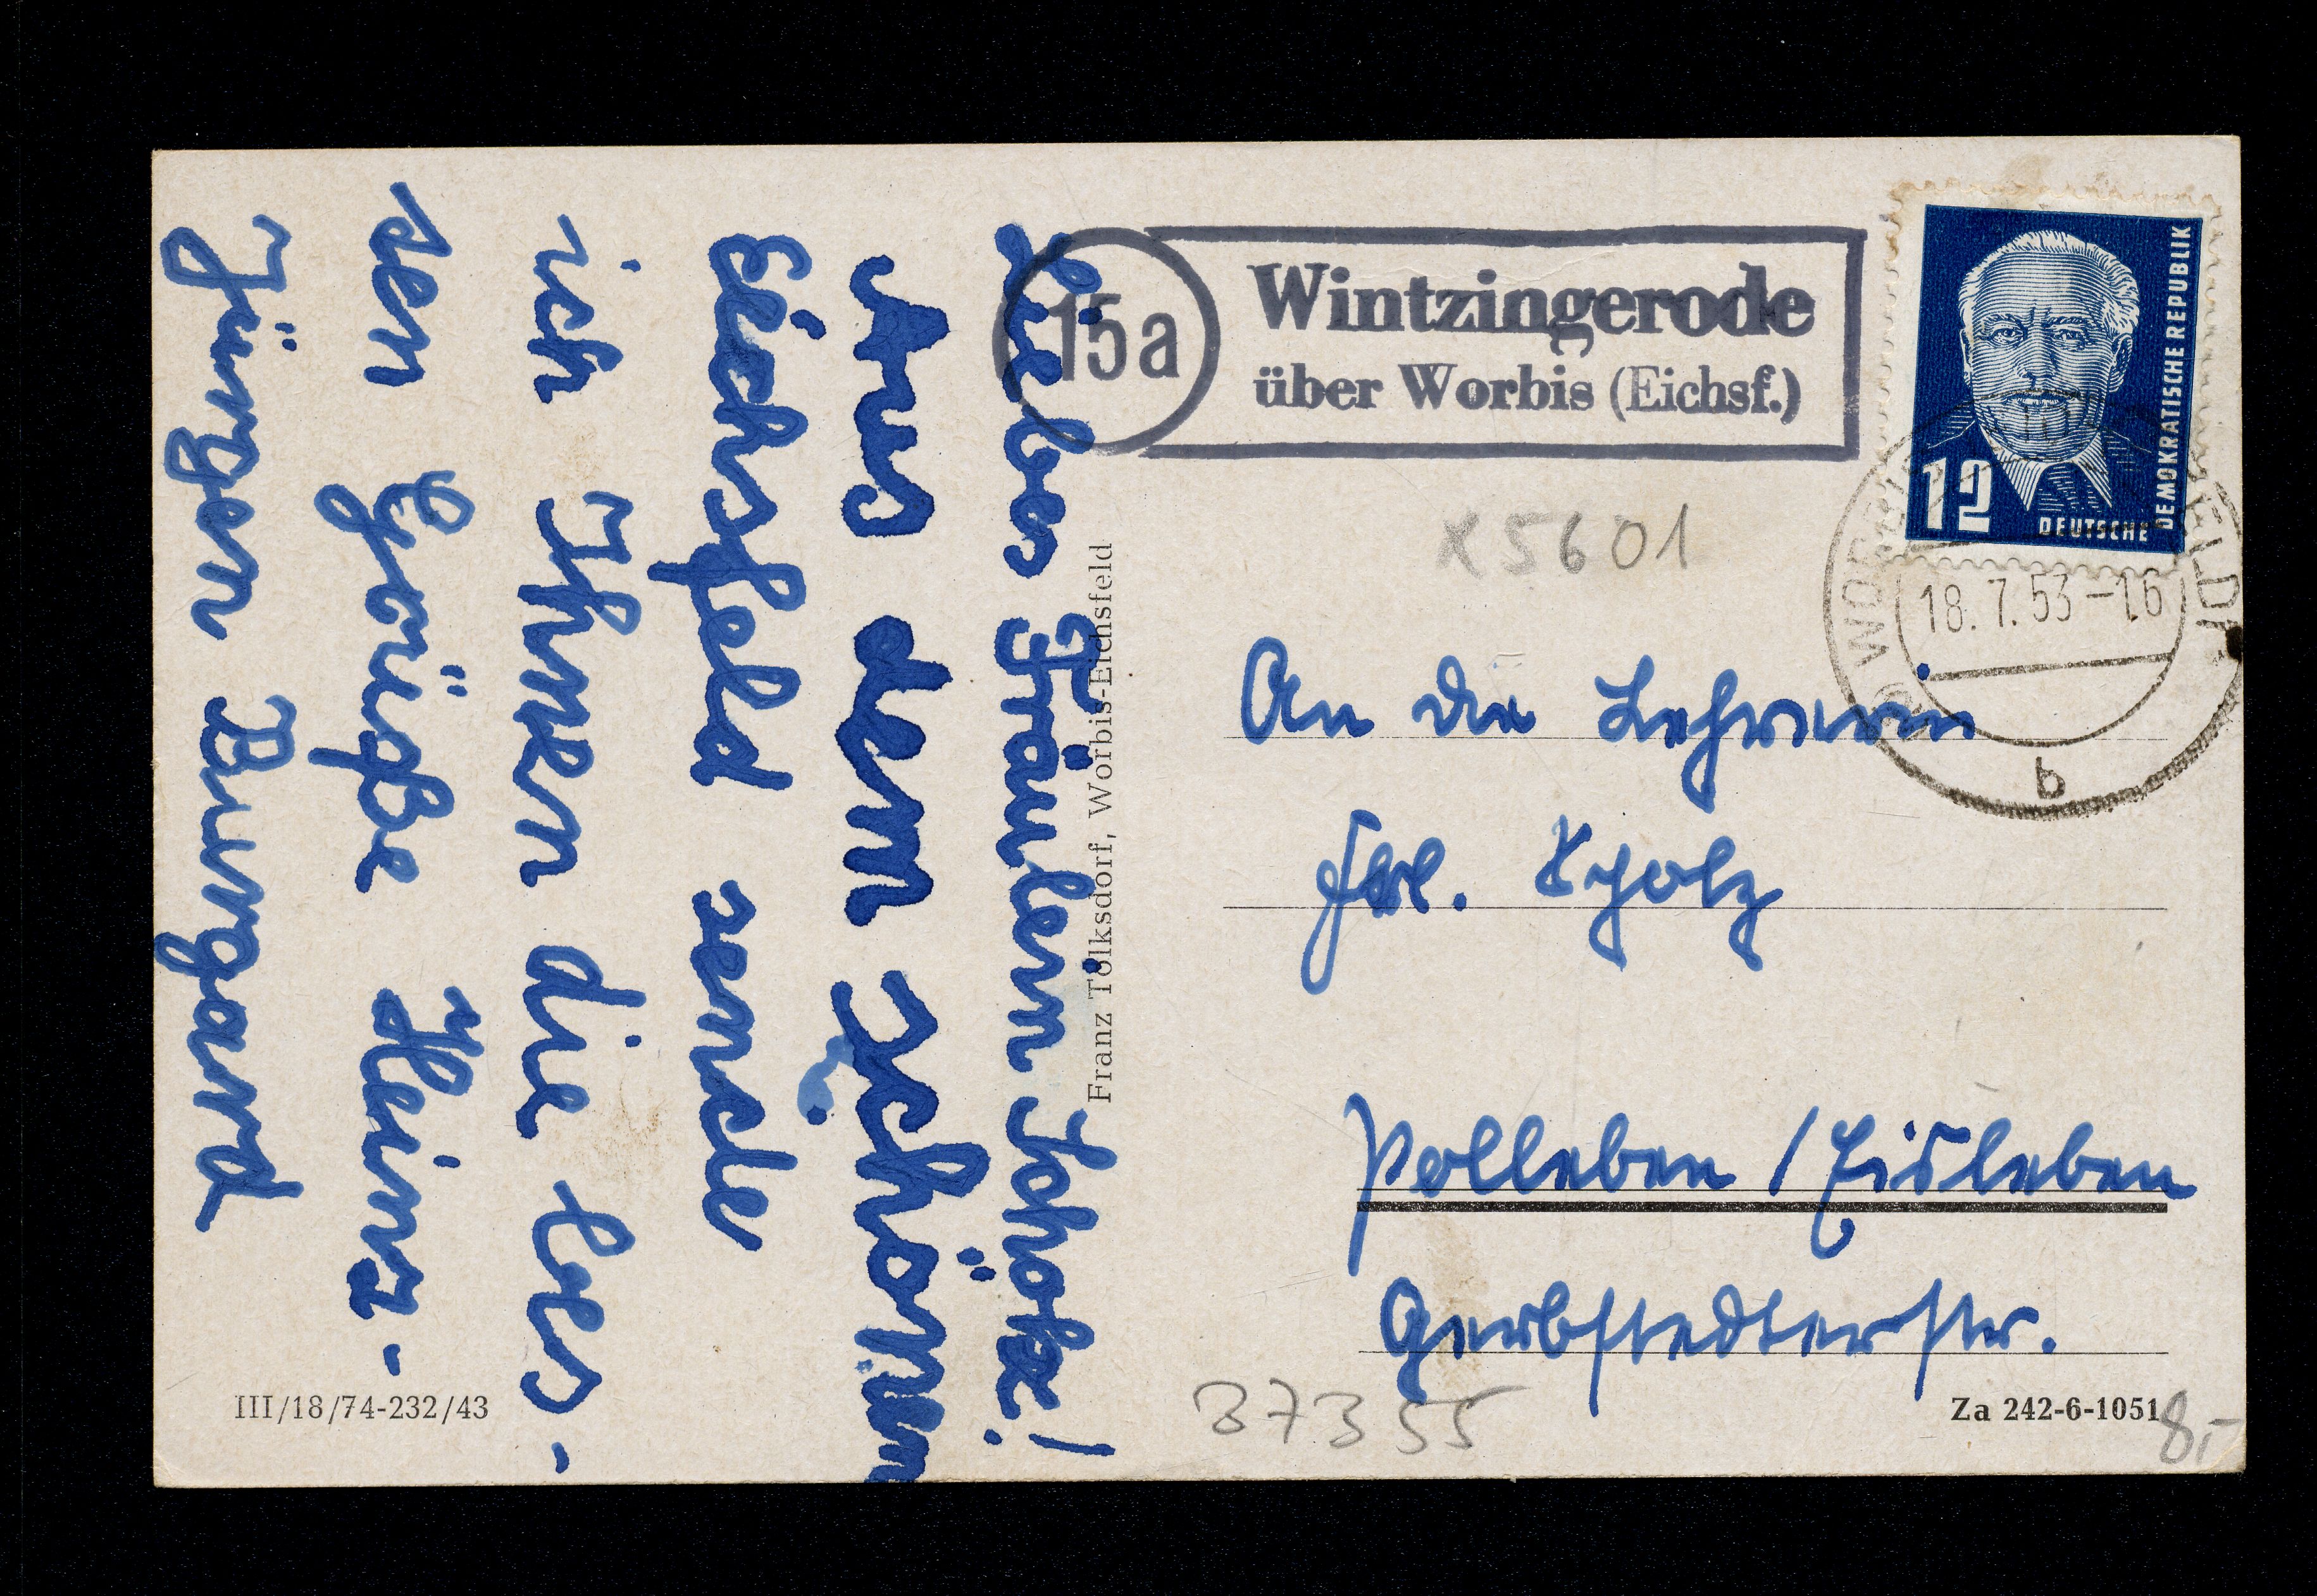 Liebes Fräulein Scholz!
Aus dem schönen
Eichsfeld sende
ich Ihnen die bes-
den Grüße Heinz-
Jürgen Burgard
Franz Tolksdorf, Worbis-Eichsfeld
III/18/74-232/43
15a
Wintzingerode
über Worbis (Eichsf.)
12
DEUTSCHE
DEMOKRATISCHE REPUBLIK
18.7.53-16
b
X5601
An die Lehrerin
Frl. Scholz
Polleben / Eisleben
Gerbstedterstr.
37355
Za 242-6-1051
8,-